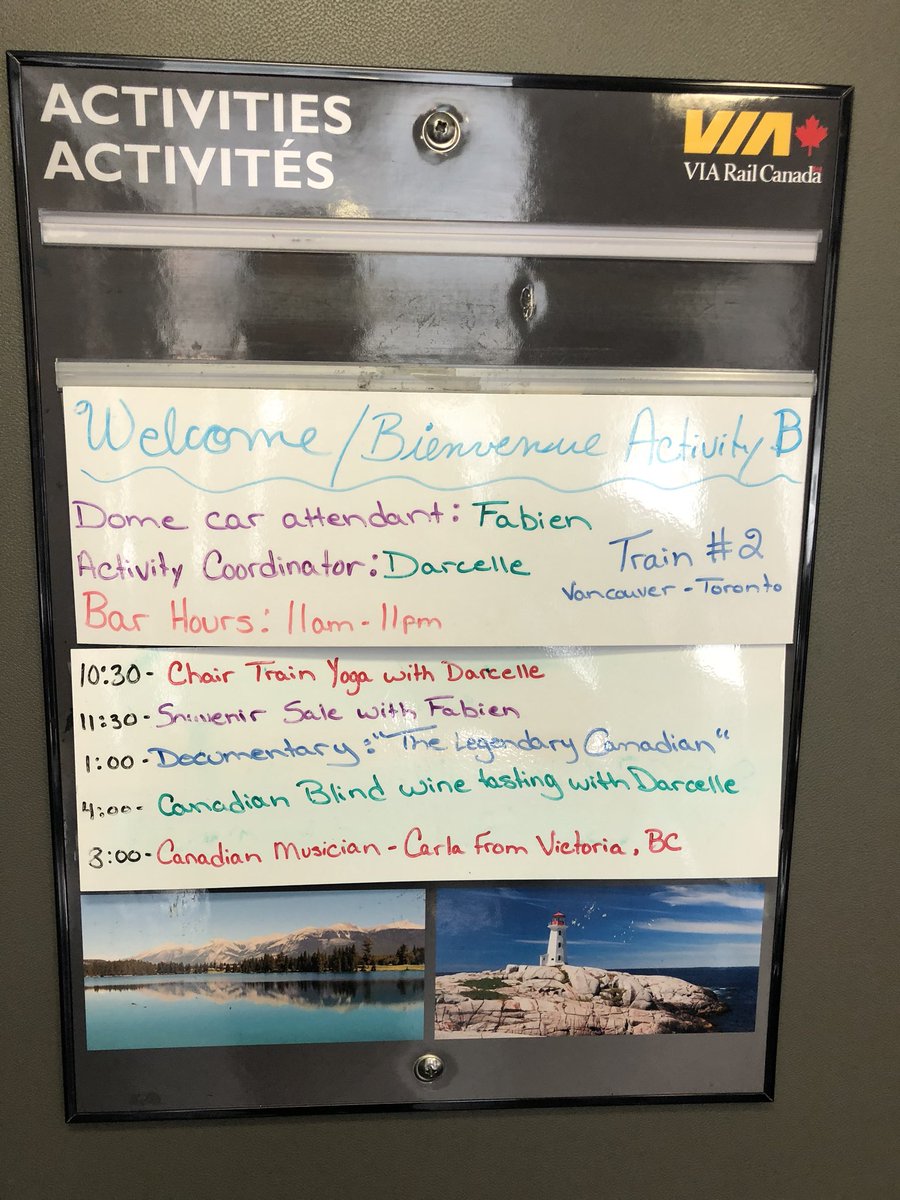 ACTIVITIES
ACTIVITÉS
VIA
VIA Rail Canada
Welcome/Bienvenue Activity B
Dome car attendant: Fabien
Activity Coordinator: Darcelle
Train #2
Vancouver - Toronto
Bar Hours: 11am - 11pm
10:30 - Chair Train Yoga with Darcelle
11:30 - Souvenir Sale with Fabien
1:00 - Documentary: "The Legendary Canadian"
4:00 - Canadian Blind wine tasting with Darcelle
8:00 - Canadian Musician - Carla From Victoria, BC